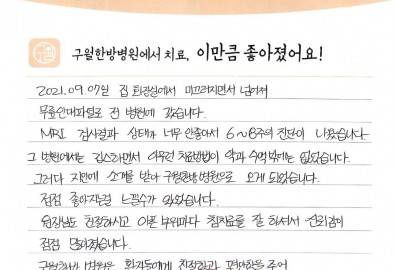 구월한방병원에서 치료, 이만큼 좋아졌어요!
2021.09.07일 집 화장실에서 미끄러지면서 넘어져
무릎인대파열로 전 병원에 갔습니다.
MRI 검사결과 상태가 너무 안좋아서 6~8주의 진단이 나왔습니다.
그 병원에서는 깁스라면서 아무런 치료방법이 약과 수액밖에는 없었습니다.
그러다 지인에 소개를 받아 구월한방병원으로 오게 되었습니다.
점점 좋아지는걸 느낄수가 있었습니다.
원장님도 친절하시고 아픈 부위마다 침치료를 잘 하셔서
점점 좋아졌습니다.
구월한방병원은 환자들에게 친절하고 편안함을 주어